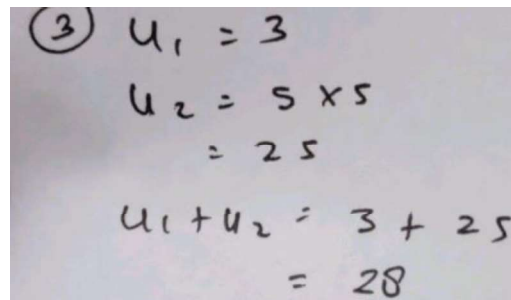 ③ U₁ = 3
U₂ = 5 × 5
= 25
U₁ + U₂ = 3 + 25
= 28